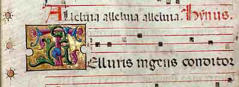 Alleluia alleluia alleluia. Hynus.
Telluris ingens conditor